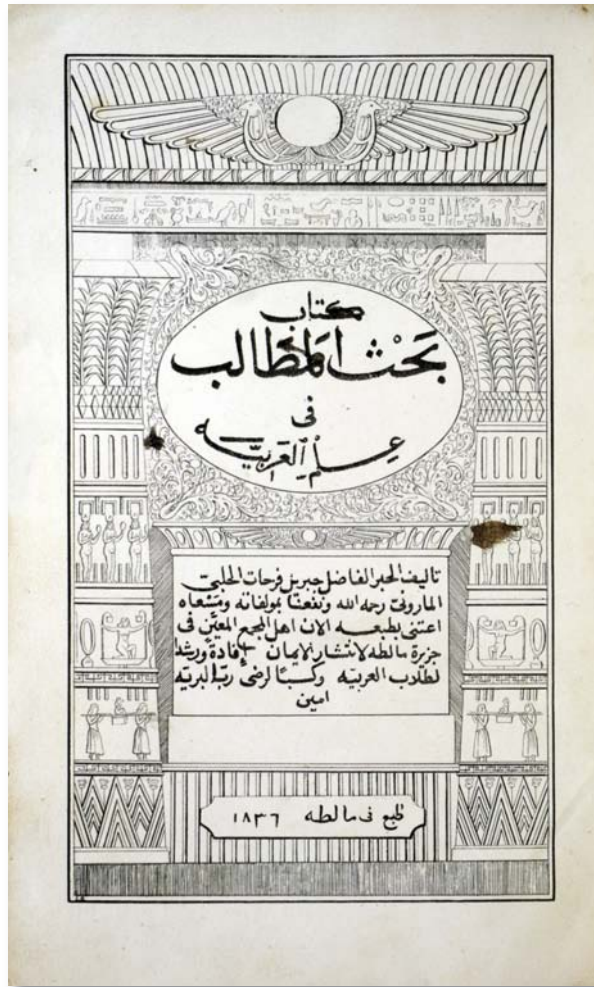 كتاب
بَحْث المَطَالب
فى
عِلمِ العَربيّه
تاليف الحبر الفاضل جبريل فرحات الحلبىّ
المارونىّ رحمه الله ونفعنا بمولفاته ومَسْعاه
اعتنى بطبعه الان اهل المجمع المعيّن فى
جزيرة مالطه لانتشار الايمان إفادةً ورشدا
لطلاب العربيّه وكسبًا لرضى ربّ البريّه
امين
طبع فى مالطه ١٨٣٦